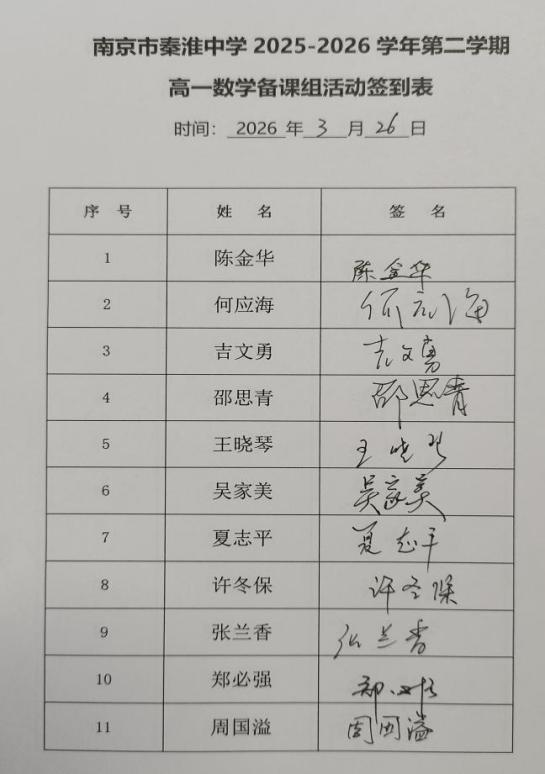 南京市秦淮中学 2025-2026 学年第二学期
高一数学备课组活动签到表
时间： 2026 年 3 月 26 日
序 号 姓 名 签 名
1 陈金华 陈金华
2 何应海 何应海
3 吉文勇 吉文勇
4 邵思青 邵思青
5 王晓琴 王晓琴
6 吴家美 吴家美
7 夏志平 夏志平
8 许冬保 许冬保
9 张兰香 张兰香
10 郑必强 郑必强
11 周国溢 周国溢